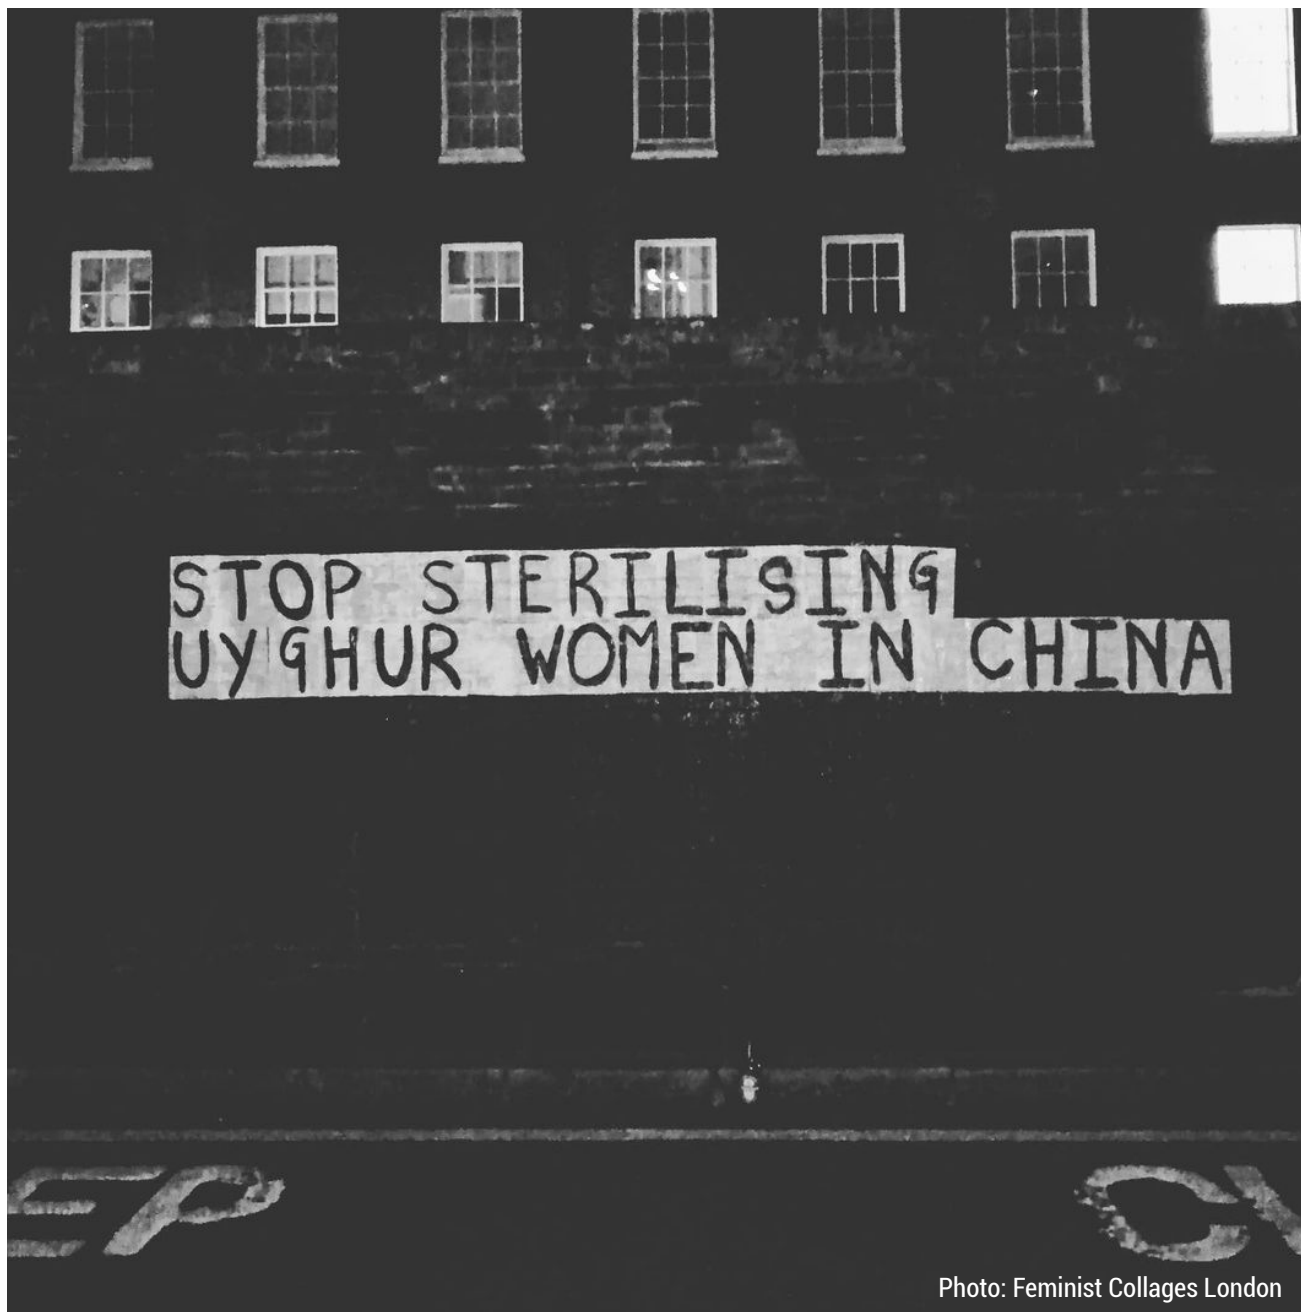 STOP STERILISING
UYGHUR WOMEN IN CHINA
EP
C
Photo: Feminist Collages London